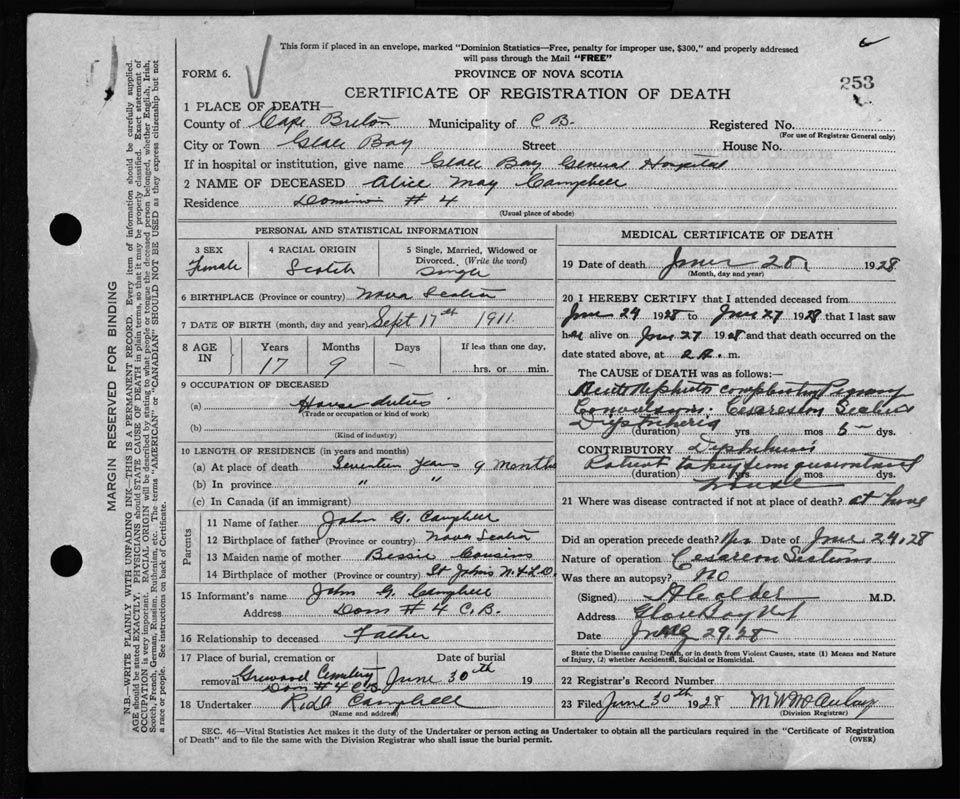 This form if placed in an envelope, marked "Dominion Statistics—Free, penalty for improper use, $300," and properly addressed
will pass through the Mail "FREE"
FORM 6.
PROVINCE OF NOVA SCOTIA
253
CERTIFICATE OF REGISTRATION OF DEATH
1 PLACE OF DEATH—
County of Cape Breton Municipality of C B. Registered No.
(For use of Registrar General only)
City or Town Glace Bay Street House No.
If in hospital or institution, give name Glace Bay General Hospital
2 NAME OF DECEASED Alice May Campbell
Residence Dominion # 4
(Usual place of abode)
PERSONAL AND STATISTICAL INFORMATION
3 SEX Female
4 RACIAL ORIGIN Scotch
5 Single, Married, Widowed or Divorced. (Write the word) Single
6 BIRTHPLACE (Province or country) Nova Scotia
7 DATE OF BIRTH (month, day and year) Sept 17th 1911
8 AGE IN Years 17 Months 9 Days – If less than one day, hrs. or min.
9 OCCUPATION OF DECEASED
(a) House duties
(Trade or occupation or kind of work)
(b)
(Kind of industry)
10 LENGTH OF RESIDENCE (in years and months)
(a) At place of death Seventeen Years 9 Months
(b) In province " "
(c) In Canada (if an immigrant)
Parents
11 Name of father John G. Campbell
12 Birthplace of father (Province or country) Nova Scotia
13 Maiden name of mother Bessie Cousins
14 Birthplace of mother (Province or country) St Johns N.F.L.D.
15 Informant's name John G. Campbell
Address Dom # 4 C.B.
16 Relationship to deceased Father
17 Place of burial, cremation or removal Greenwood Cemetery Dom # 4 C B Date of burial June 30th 19
18 Undertaker Campbell
(Name and address)
MEDICAL CERTIFICATE OF DEATH
19 Date of death June 28 1928
(Month, day and year)
20 I HEREBY CERTIFY that I attended deceased from
June 24 1928 to June 27 1928 that I last saw
her alive on June 27 1928 and that death occurred on the
date stated above, at m.
The CAUSE OF DEATH was as follows:—
Acute Nephritis complicating Pregnancy
Convulsions. Cesarean Section
Diphtheria
(duration) yrs mos 5 dys.
CONTRIBUTORY Diphtheria
Patient taken from quarantined
(duration) yrs. mos dys.
house
21 Where was disease contracted if not at place of death? at home
Did an operation precede death? Yes Date of June 24, 28
Nature of operation Cesarean Section
Was there an autopsy? No
(Signed) M.D.
Address Glace Bay N S
Date June 29. 28
State the Disease causing Death, or in death from Violent Causes, state (1) Means and Nature
of Injury, (2) whether Accidental, Suicidal or Homicidal.
22 Registrar's Record Number
23 Filed June 30th 1928 M W McAulay
(Division Registrar)
SEC. 46—Vital Statistics Act makes it the duty of the Undertaker or person acting as Undertaker to obtain all the particulars required in the "Certificate of Registration
of Death" and to file the same with the Division Registrar who shall issue the burial permit.
(OVER)
MARGIN RESERVED FOR BINDING
N.B.—WRITE PLAINLY WITH UNFADING INK—THIS IS A PERMANENT RECORD. Every item of information should be carefully supplied.
AGE should be stated EXACTLY. PHYSICIANS should STATE CAUSE OF DEATH in plain terms, so that it may be properly classified. Exact statement of
OCCUPATION is very important. RACIAL ORIGIN will be described by stating to what people or tongue the deceased person belonged, whether English, Irish,
Scotch, French, German, Russian, Ruthenian, etc. The terms "AMERICAN" or "CANADIAN" SHOULD NOT BE USED as they express citizenship but not
a race or people. See instructions on back of Certificate.